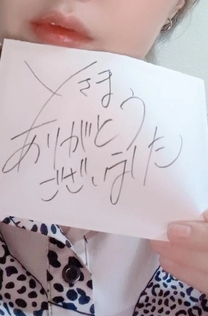 Yさまっ
ありがとう
ございました